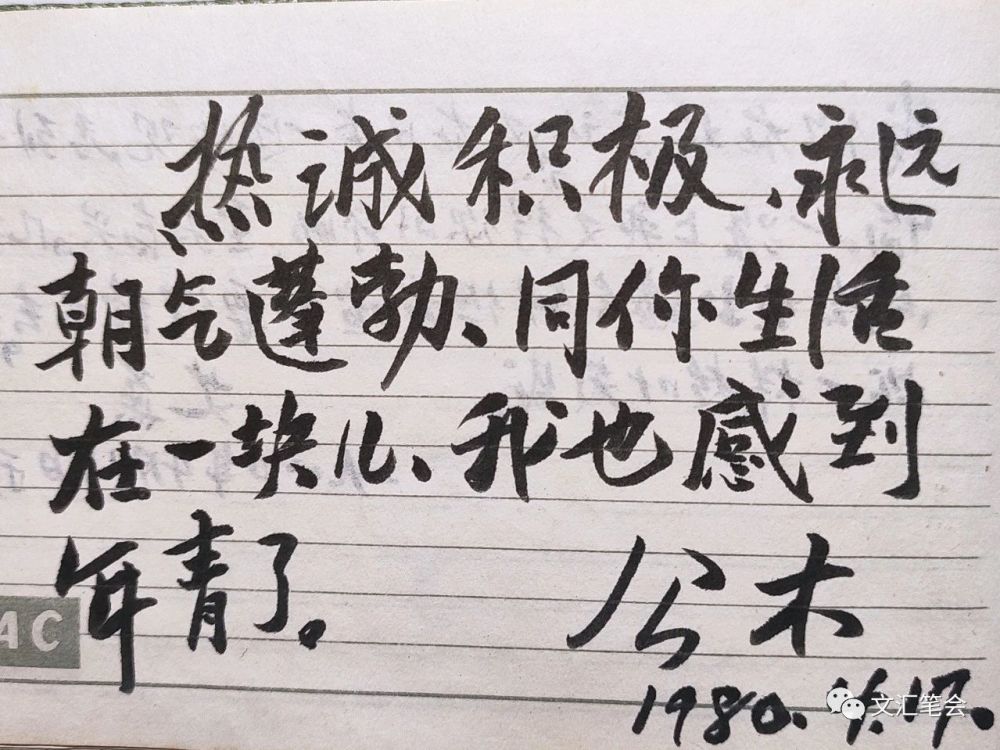 热诚积极、永远
朝气蓬勃、同你生活
在一块儿、我也感到
年青了。
公木
1980.
AC
文汇笔会